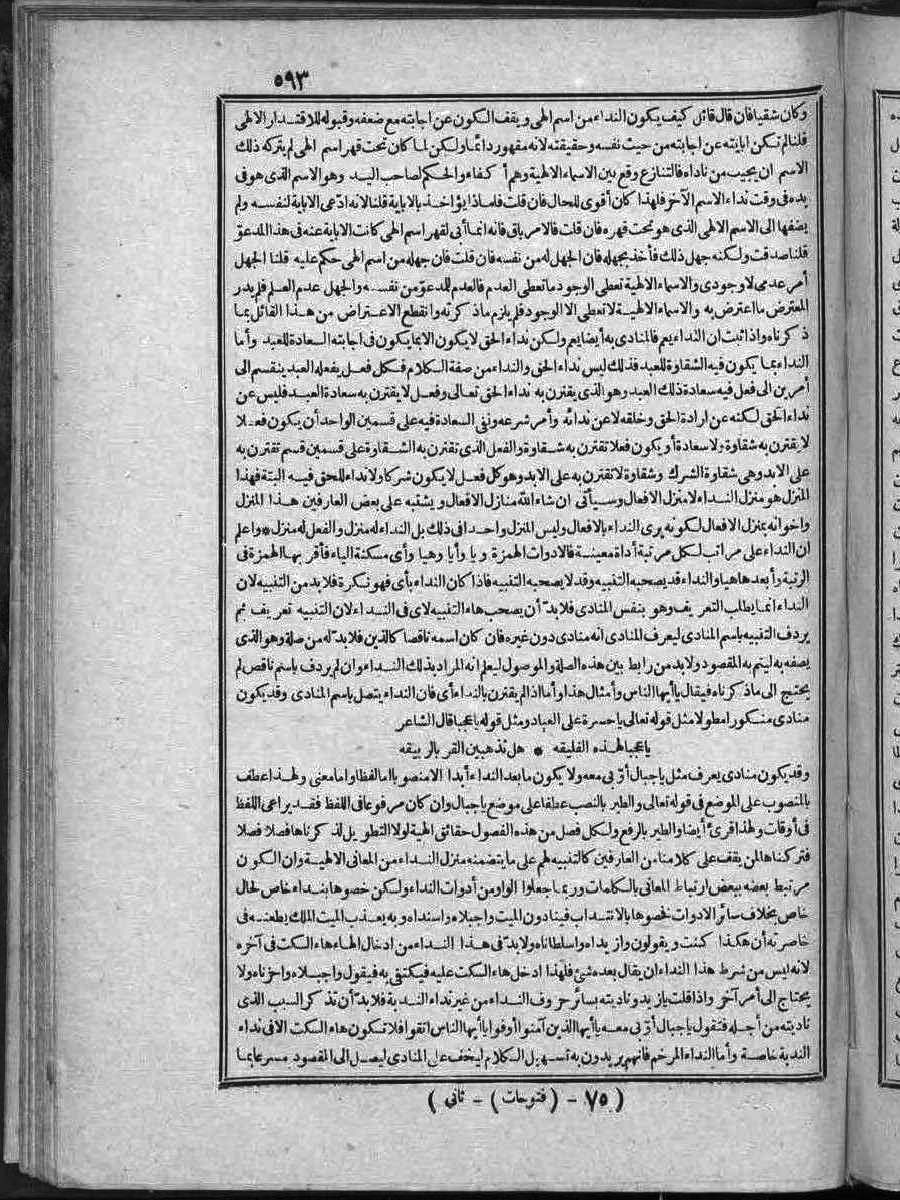 ٥٩٣
وكان شقيا فان قال قائل كيف يكون النداء من اسم الهى ويقف الكون عن اجابته مع ضعفه وقبوله للاقتدار الالهى
قلنا لم تكن ابايته عن اجابته من حيث نفسه وحقيقته لانه مقهور دائما ولكن لما كان تحت قهر اسم الهى لم يتركه ذلك
الاسم ان يجيب من ناداه فالتنازع وقع بين الاسماء الالهية وهم أكفاء والحكم لصاحب اليد وهو الاسم الذى هو فى
يده فى وقت نداء الاسم الآخر فلهذا كان أقوى للحال فان قلت فلماذا يؤاخذ بالاباية قلنا لانه ادّعى الاباية لنفسه ولم
يضفها الى الاسم الالهى الذى هو تحت قهره فان قلت فالامر باق فانه انما أبى لقهر اسم الهى كانت الاباية عنه فى هذا المدعوّ
قلنا صدقت ولكنه جهل ذلك فأخذ بجهله فان الجهل له من نفسه فان قلت فان جهله من اسم الهى حكم عليه قلنا الجهل
أمر عدمى لا وجودى والاسماء الالهية تعطى الوجود ما تعطى العدم فالعدم للمدعوّ من نفسه والجهل عدم العلم فلم يدر
المعترض ما اعترض به والاسماء الالهية لا تعطى الا الوجود فلم يلزم ما ذكرته وانقطع الاعتراض من هذا القائل بما
ذكرناه واذا ثبت ان النداء يعم فالمنادى به أيضا يعم ولكن نداء الحق لا يكون الا بما يكون فى اجابته السعادة للعبد وأما
النداء بما يكون فيه الشقاوة للعبد فذلك ليس نداء الحق والنداء من صفة الكلام فكل فعل يفعله العبد ينقسم الى
أمرين الى فعل فيه سعادة ذلك العبد وهو الذى يقترن به نداء الحق تعالى وفعل لا يقترن به سعادة العبد فليس عن
نداء الحق لكنه عن ارادة الحق وخلقه لا عن ندائه وأمر شرعه ونفى السعادة فيه على قسمين الواحد أن يكون فعلا
لا يقترن به شقاوة ولا سعادة أو يكون فعلا تقترن به شقاوة والفعل الذى تقترن به الشقاوة على قسمين قسم تقترن به
على الابد وهى شقاوة الشرك وشقاوة لا تقترن به على الابد وهو كل فعل لا يكون شركا ولا نداء للحق فيه البتة فهذا
المنزل هو منزل النداء لا منزل الافعال وسيأتى ان شاء الله منازل الافعال ويشتبه على بعض العارفين هذا المنزل
واخوانه بمنزل الافعال لكونه يرى النداء بالافعال وليس المنزل واحدا فى ذلك بل النداء له منزل والفعل له منزل * واعلم
ان النداء على مراتب لكل مرتبة أداة معينة فالادوات الهمزة ويا وأيا وهيا وأى مسكنة الياء فأقربها الهمزة فى
الرتبة وأبعدها هيا والنداء قد يصحبه التنبيه وقد لا يصحبه التنبيه فاذا كان النداء بأى فهو نكرة فلابد من التنبيه لان
النداء انما يطلب التعريف وهو بنفس المنادى فلابدّ أن يصحب هاء التنبيه لاى فى النداء لان التنبيه تعريف ثم
يردف التنبيه باسم المنادى ليعرف المنادى انه منادى دون غيره فان كان اسمه ناقصا كالذين فلابدّ له من صلة وهو الذى
يصفه به ليتم به المقصود ولابد من رابط بين هذه الصلة والموصول ليعلم انه المراد بذلك النداء وان لم يردف باسم ناقص لم
يحتج الى ما ذكرناه فيقال يا أيها الناس وأمثال هذا وأما اذا لم يقترن بالنداء أى فان النداء يتصل باسم المنادى وقد يكون
منادى منكورا مطولا مثل قوله تعالى يا حسرة على العباد ومثل قوله يا عجبا قال الشاعر
يا عجبا لهذه الفليقه * هل تذهبن القوباء الريقه
وقد يكون منادى يعرف مثل يا جبال أوّبى معه ولا يكون ما بعد النداء أبدا الا منصوبا اما لفظا واما معنى ولهذا عطف
بالمنصوب على الموضع فى قوله تعالى والطير بالنصب عطفا على موضع يا جبال وان كان مرفوعا فى اللفظ فقد يراعى اللفظ
فى أوقات ولهذا قرئ أيضا والطير بالرفع ولكل فصل من هذه الفصول حقائق الهية لولا التطويل لذكرناها فصلا فصلا
فتركناها لمن يقف على كلامنا من العارفين كالتنبيه لهم على ما يتضمنه منزل النداء من المعانى الالهية وان الكون
مرتبط بعضه ببعض ارتباط المعانى بالكلمات وربما جعلوا الواو من أدوات النداء ولكن خصوها بنداء خاص لحال
خاص بخلاف سائر الادوات فخصوها بالانتداب فينادون الميت واجبلاه واسنداه وبه يعذب الميت الملك يطعنه فى
خاصرته أن هكذا كنت ويقولون وازيداه واسلطاناه ولابدّ فى هذا النداء من ادخال الهاء هاء السكت فى آخره
لانه ليس من شرط هذا النداء ان يقال بعده شئ فلهذا ادخل هاء السكت عليه فيكتفى به فيقول واجبلاه واحزناه ولا
يحتاج الى أمر آخر واذا قلت يا زيد وناديته بسائر حروف النداء من غير نداء الندبة فلابدّ أن تذكر السبب الذى
ناديته من أجله فتقول يا جبال أوّبى معه يا أيها الذين آمنوا أوفوا يا أيها الناس اتقوا فلا تكون هاء السكت الا فى نداء
الندبة خاصة وأما النداء المرخم فانهم يريدون به تسهيل الكلام ليخف على المنادى ليصل الى المقصود مسرعا بما
( ٧٥ - ( فتوحات ) - ثانى )